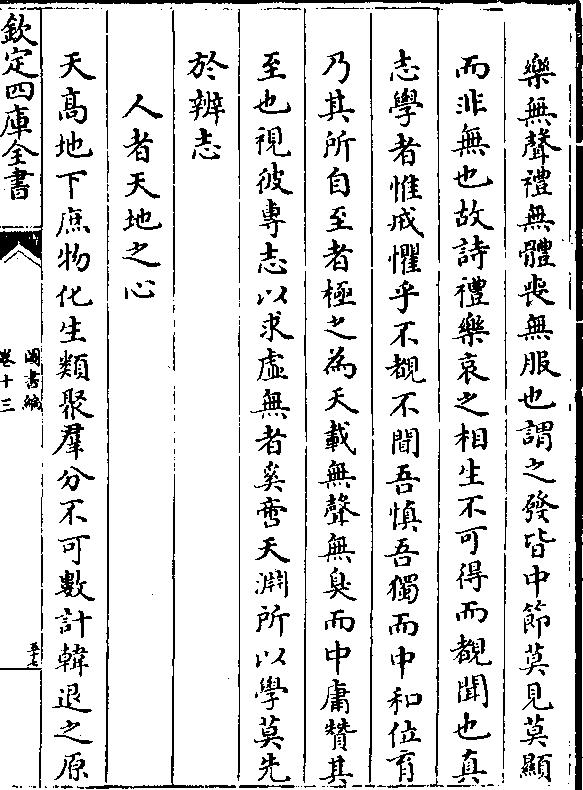 樂無聲禮無體喪無服也謂之發皆中節莫見莫顯
而非無也故詩禮樂哀之相生不可得而覩聞也真
志學者惟戒懼乎不覩不聞吾慎吾獨而中和位育
乃其所自至者極之為天載無聲無臭而中庸贊其
至也視彼專志以求虛無者奚啻天淵所以學莫先
於辨志
人者天地之心
天髙地下庶物化生類聚羣分不可數計韓退之原
欽定四庫全書
圖書編
卷十三
五十七